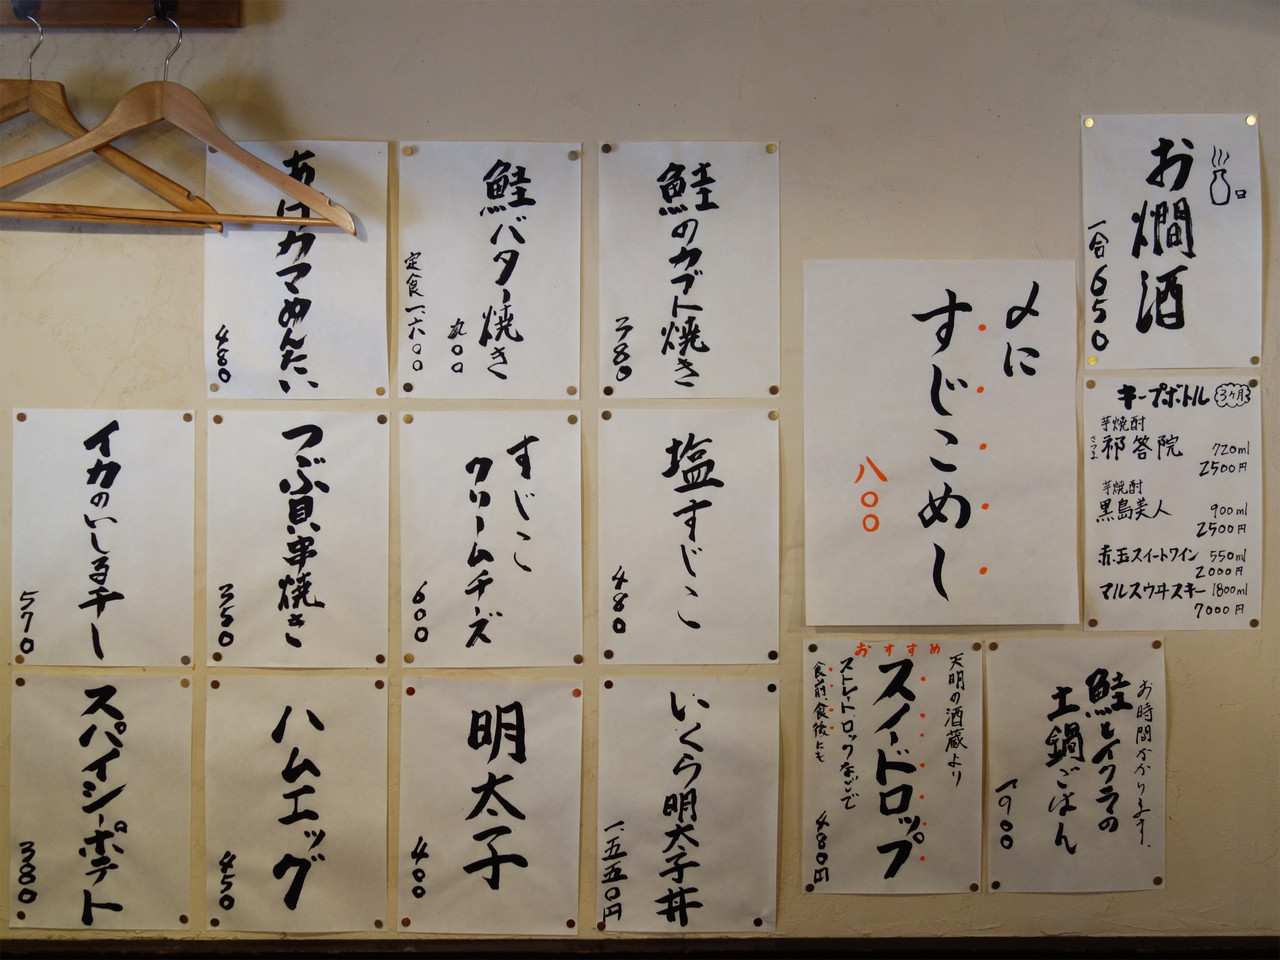 お燗酒
一合650
キープボトル 3ヶ月
芋焼酎
さつま 祁答院 720ml
2500円
芋焼酎
黒島美人 900ml
2500円
赤玉スイートワイン 550ml
2000円
マルスウヰスキー 1800ml
7000円
〆に
すじこめし
八〇〇
お時間かかります。
鮭とイクラの
土鍋ごはん
一九〇〇
おすすめ
天明の酒蔵より
スノードロップ
ストレート、ロックなどで
食前、食後にも
480円
鮭のカブト焼き
380
鮭バター焼き
九〇〇
定食 一、六〇〇
あげカマめんたい
480
塩すじこ
480
すじこ
クリームチーズ
600
つぶ貝串焼き
350
イカのいしる干し
570
いくら明太子丼
一、五五〇円
明太子
400
ハムエッグ
450
スパイシーポテト
380